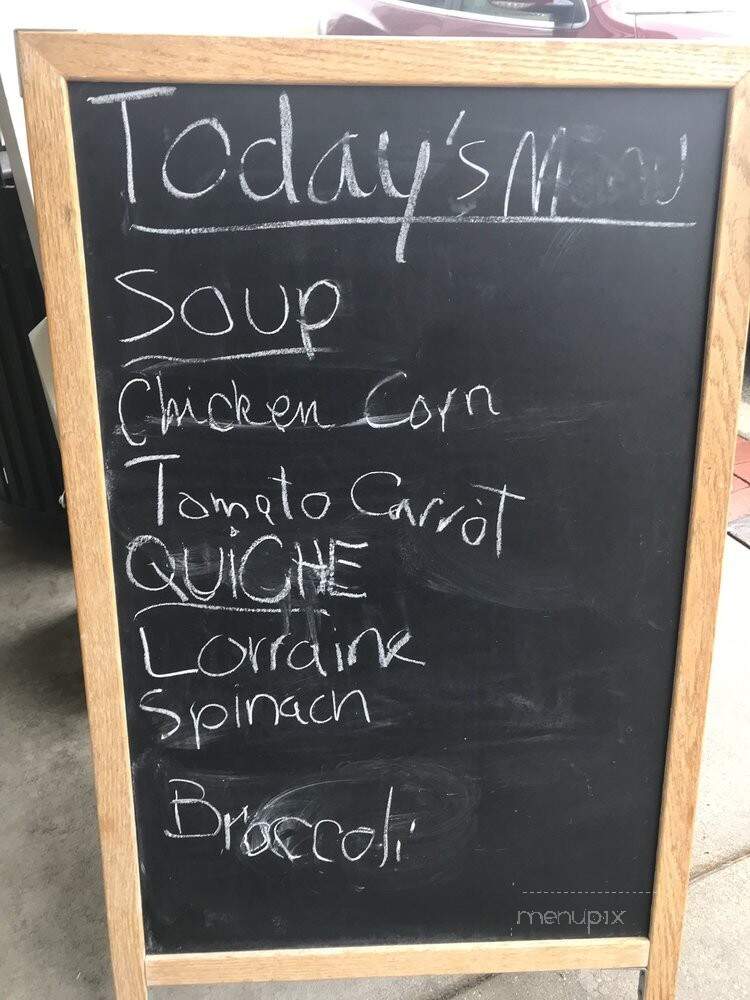 Today's Menu
Soup
Chicken Corn
Tomato Carrot
QUiCHE
Lorraine
Spinach
Broccoli
menupix